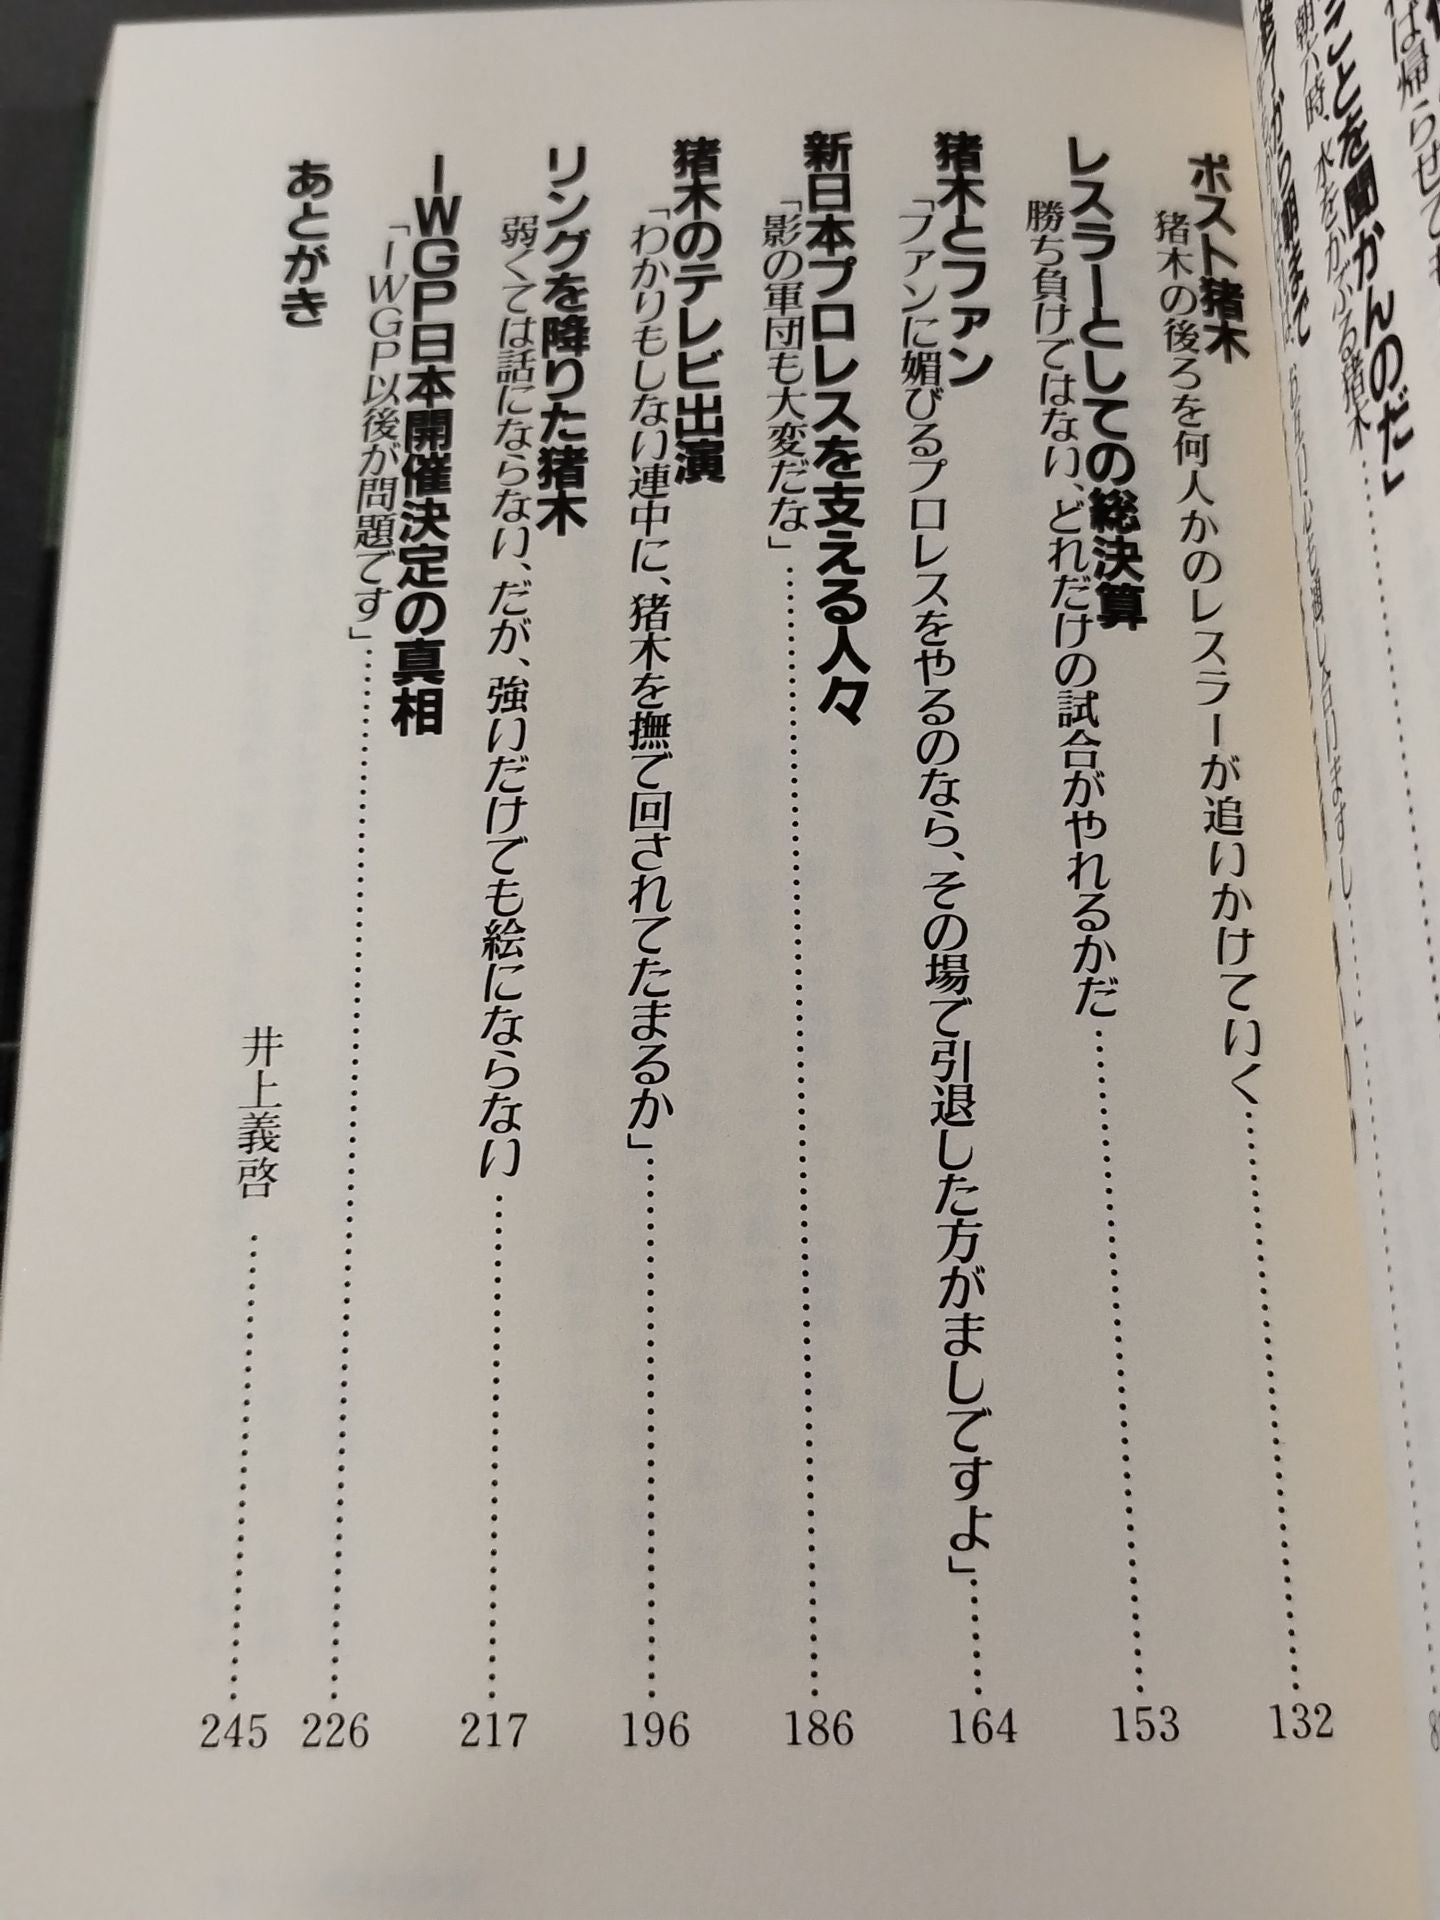 ことを聞かんのだ」
朝六時、水をかぶる猪木……
ポスト猪木
猪木の後ろを何人かのレスラーが追いかけていく……132
レスラーとしての総決算
勝ち負けではない、どれだけの試合がやれるかだ……153
猪木とファン
「ファンに媚びるプロレスをやるのなら、その場で引退した方がましですよ」……164
新日本プロレスを支える人々
「影の軍団も大変だな」……186
猪木のテレビ出演
「わかりもしない連中に、猪木を撫で回されてたまるか」……196
リングを降りた猪木
弱くては話にならない、だが、強いだけでも絵にならない……217
IWGP日本開催決定の真相
「IWGP以後が問題です」……226
あとがき
井上義啓……245